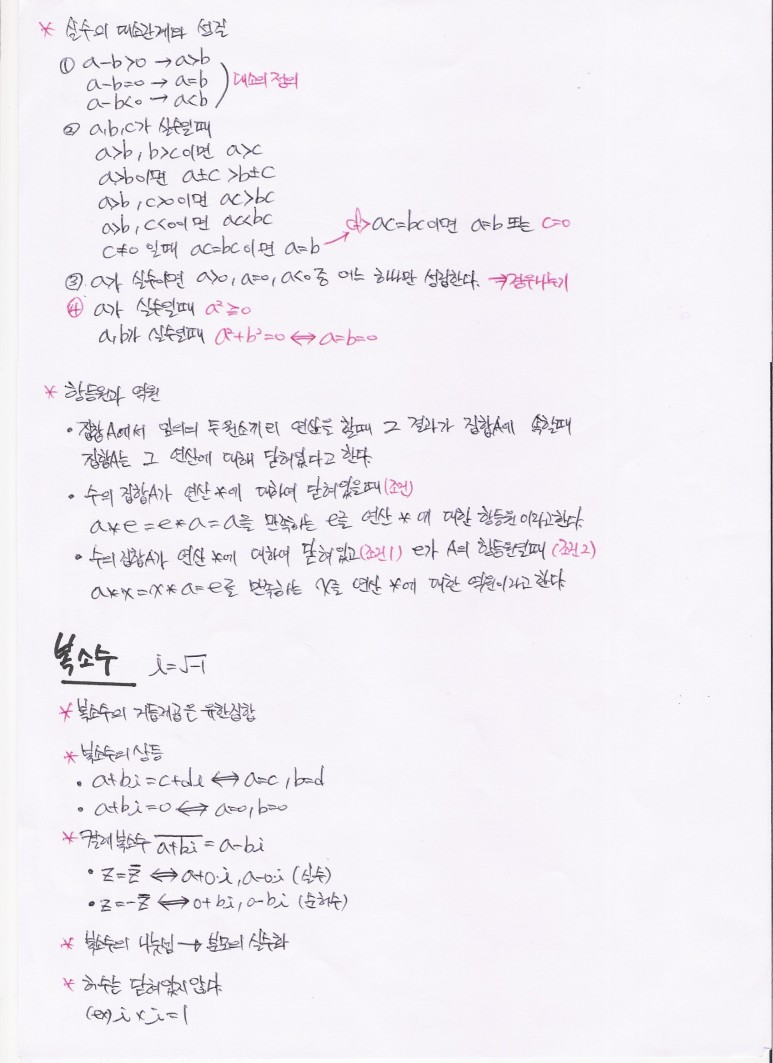 * 실수의 대소관계와 성질
① a-b>0 → a>b
a-b=0 → a=b
a-b<0 → a<b
대소의 정의
② a,b,c가 실수일때
a>b, b>c이면 a>c
a>b이면 a±c >b±c
a>b, c>0이면 ac>bc
a>b, c<0이면 ac<bc
c≠0 일때 ac=bc이면 a=b
ac=bc이면 a=b 또는 c=0
③ a가 실수이면 a>0, a=0, a<0 중 어느 하나만 성립한다. →경우나누기
④ a가 실수일때 a²≥0
a,b가 실수일때 a²+b²=0 ⟺ a=b=0
* 항등원과 역원
• 집합A에서 임의의 두원소끼리 연산을 할때 그 결과가 집합A에 속할때
집합A는 그 연산에 대해 닫혀있다고 한다.
• 수의 집합A가 연산 *에 대하여 닫혀있을때(조건)
a*e=e*a=a을 만족하는 e를 연산 * 에 대한 항등원 이라고한다.
• 수의 집합A가 연산 *에 대하여 닫혀있고(조건1) e가 A의 항등원일때 (조건2)
a*x=x*a=e를 만족하는 x를 연산 *에 대한 역원이라고 한다.
복소수 i=√-1
* 복소수의 거듭제곱은 유한집합
* 복소수의 상등
• a+bi=c+di ⟺ a=c, b=d
• a+bi=0 ⟺ a=0, b=0
* 켤레복소수 a+bi̅ = a-bi
• z=z̅ ⟺ a+0·i, a-0·i (실수)
• z=-z̅ ⟺ 0+bi, 0-bi (순허수)
* 복소수의 나눗셈 → 분모의 실수화
* 허수는 닫혀있지 않다.
(ex) i×i=1